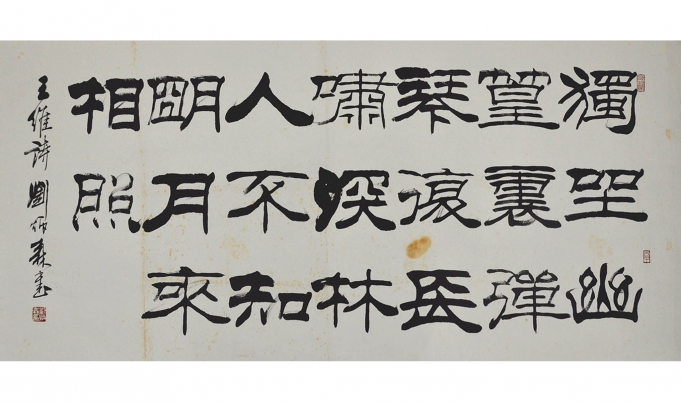 獨坐幽
篁裏彈
琴復長
嘯深林
人不知
明月來
相照
王維詩 劉炳森書